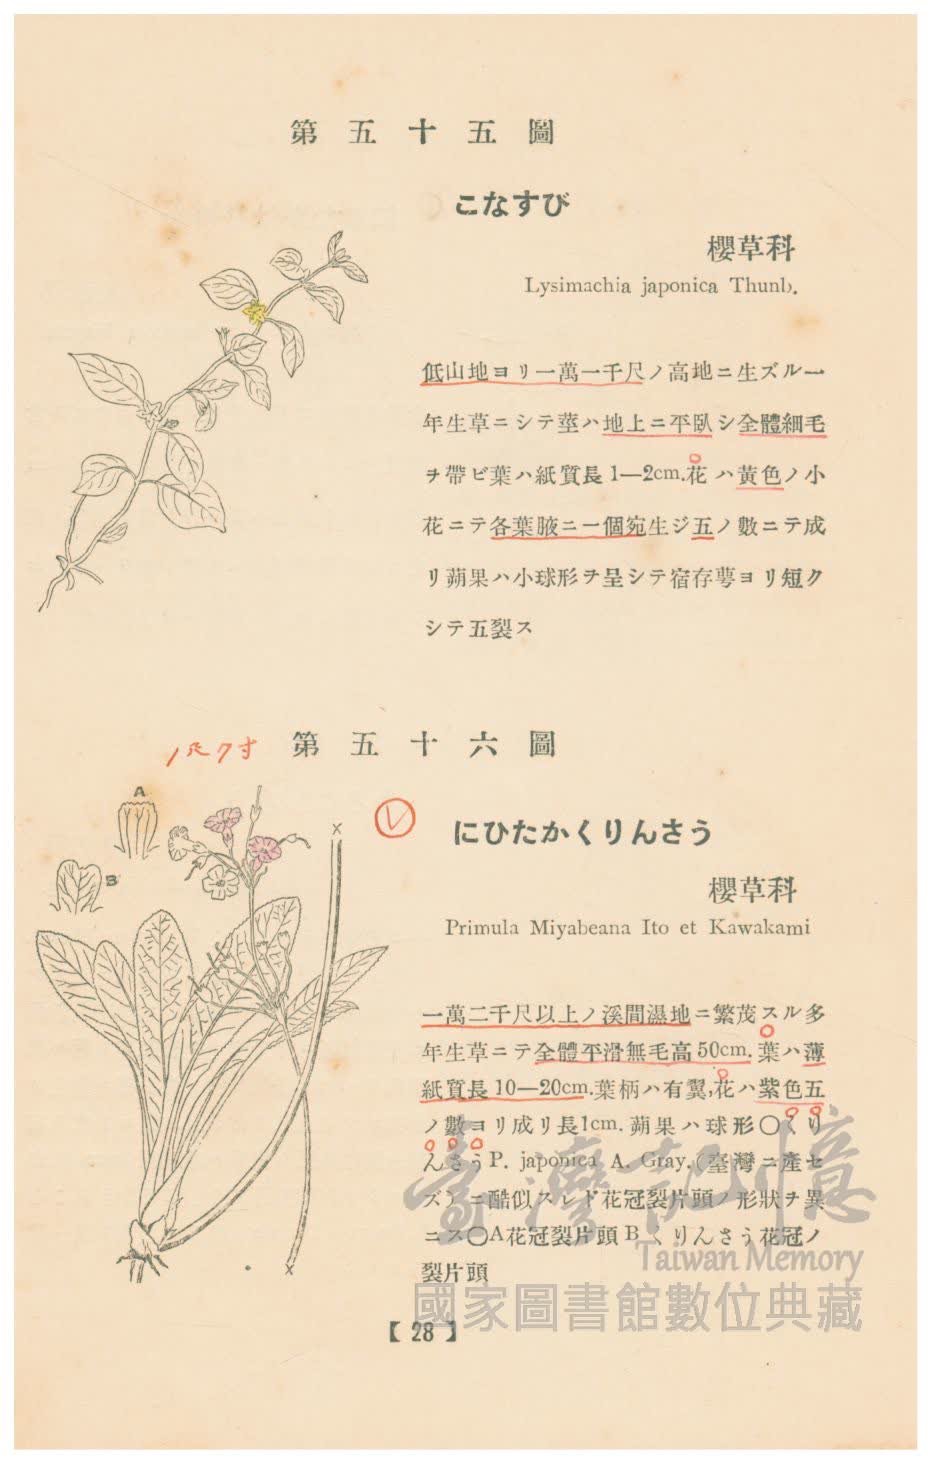 第五十五圖
こなすび
櫻草科
Lysimachia japonica Thunb.
低山地ヨリ一萬一千尺ノ高地ニ生ズル一
年生草ニシテ莖ハ地上ニ平臥シ全體細毛
ヲ帶ビ葉ハ紙質長1—2cm.花ハ黃色ノ小
花ニテ各葉腋ニ一個宛生ジ五ノ數ニテ成
リ蒴果ハ小球形ヲ呈シテ宿存萼ヨリ短ク
シテ五裂ス
1尺7寸
第五十六圖
A
B
にひたかくりんさう
櫻草科
Primula Miyabeana Ito et Kawakami
一萬二千尺以上ノ溪間濕地ニ繁茂スル多
年生草ニテ全體平滑無毛高50cm.葉ハ薄
紙質長10—20cm.葉柄ハ有翼,花ハ紫色五
ノ數ヨリ成リ長1cm.蒴果ハ球形〇くり
んさうP. japonica A. Gray.(臺灣ニ產セ
ズ)ニ酷似スレド花冠裂片頭ノ形狀ヲ異
ニス〇A花冠裂片頭Bくりんさう花冠ノ
裂片頭
【28】
臺灣記憶
Taiwan Memory
國家圖書館數位典藏